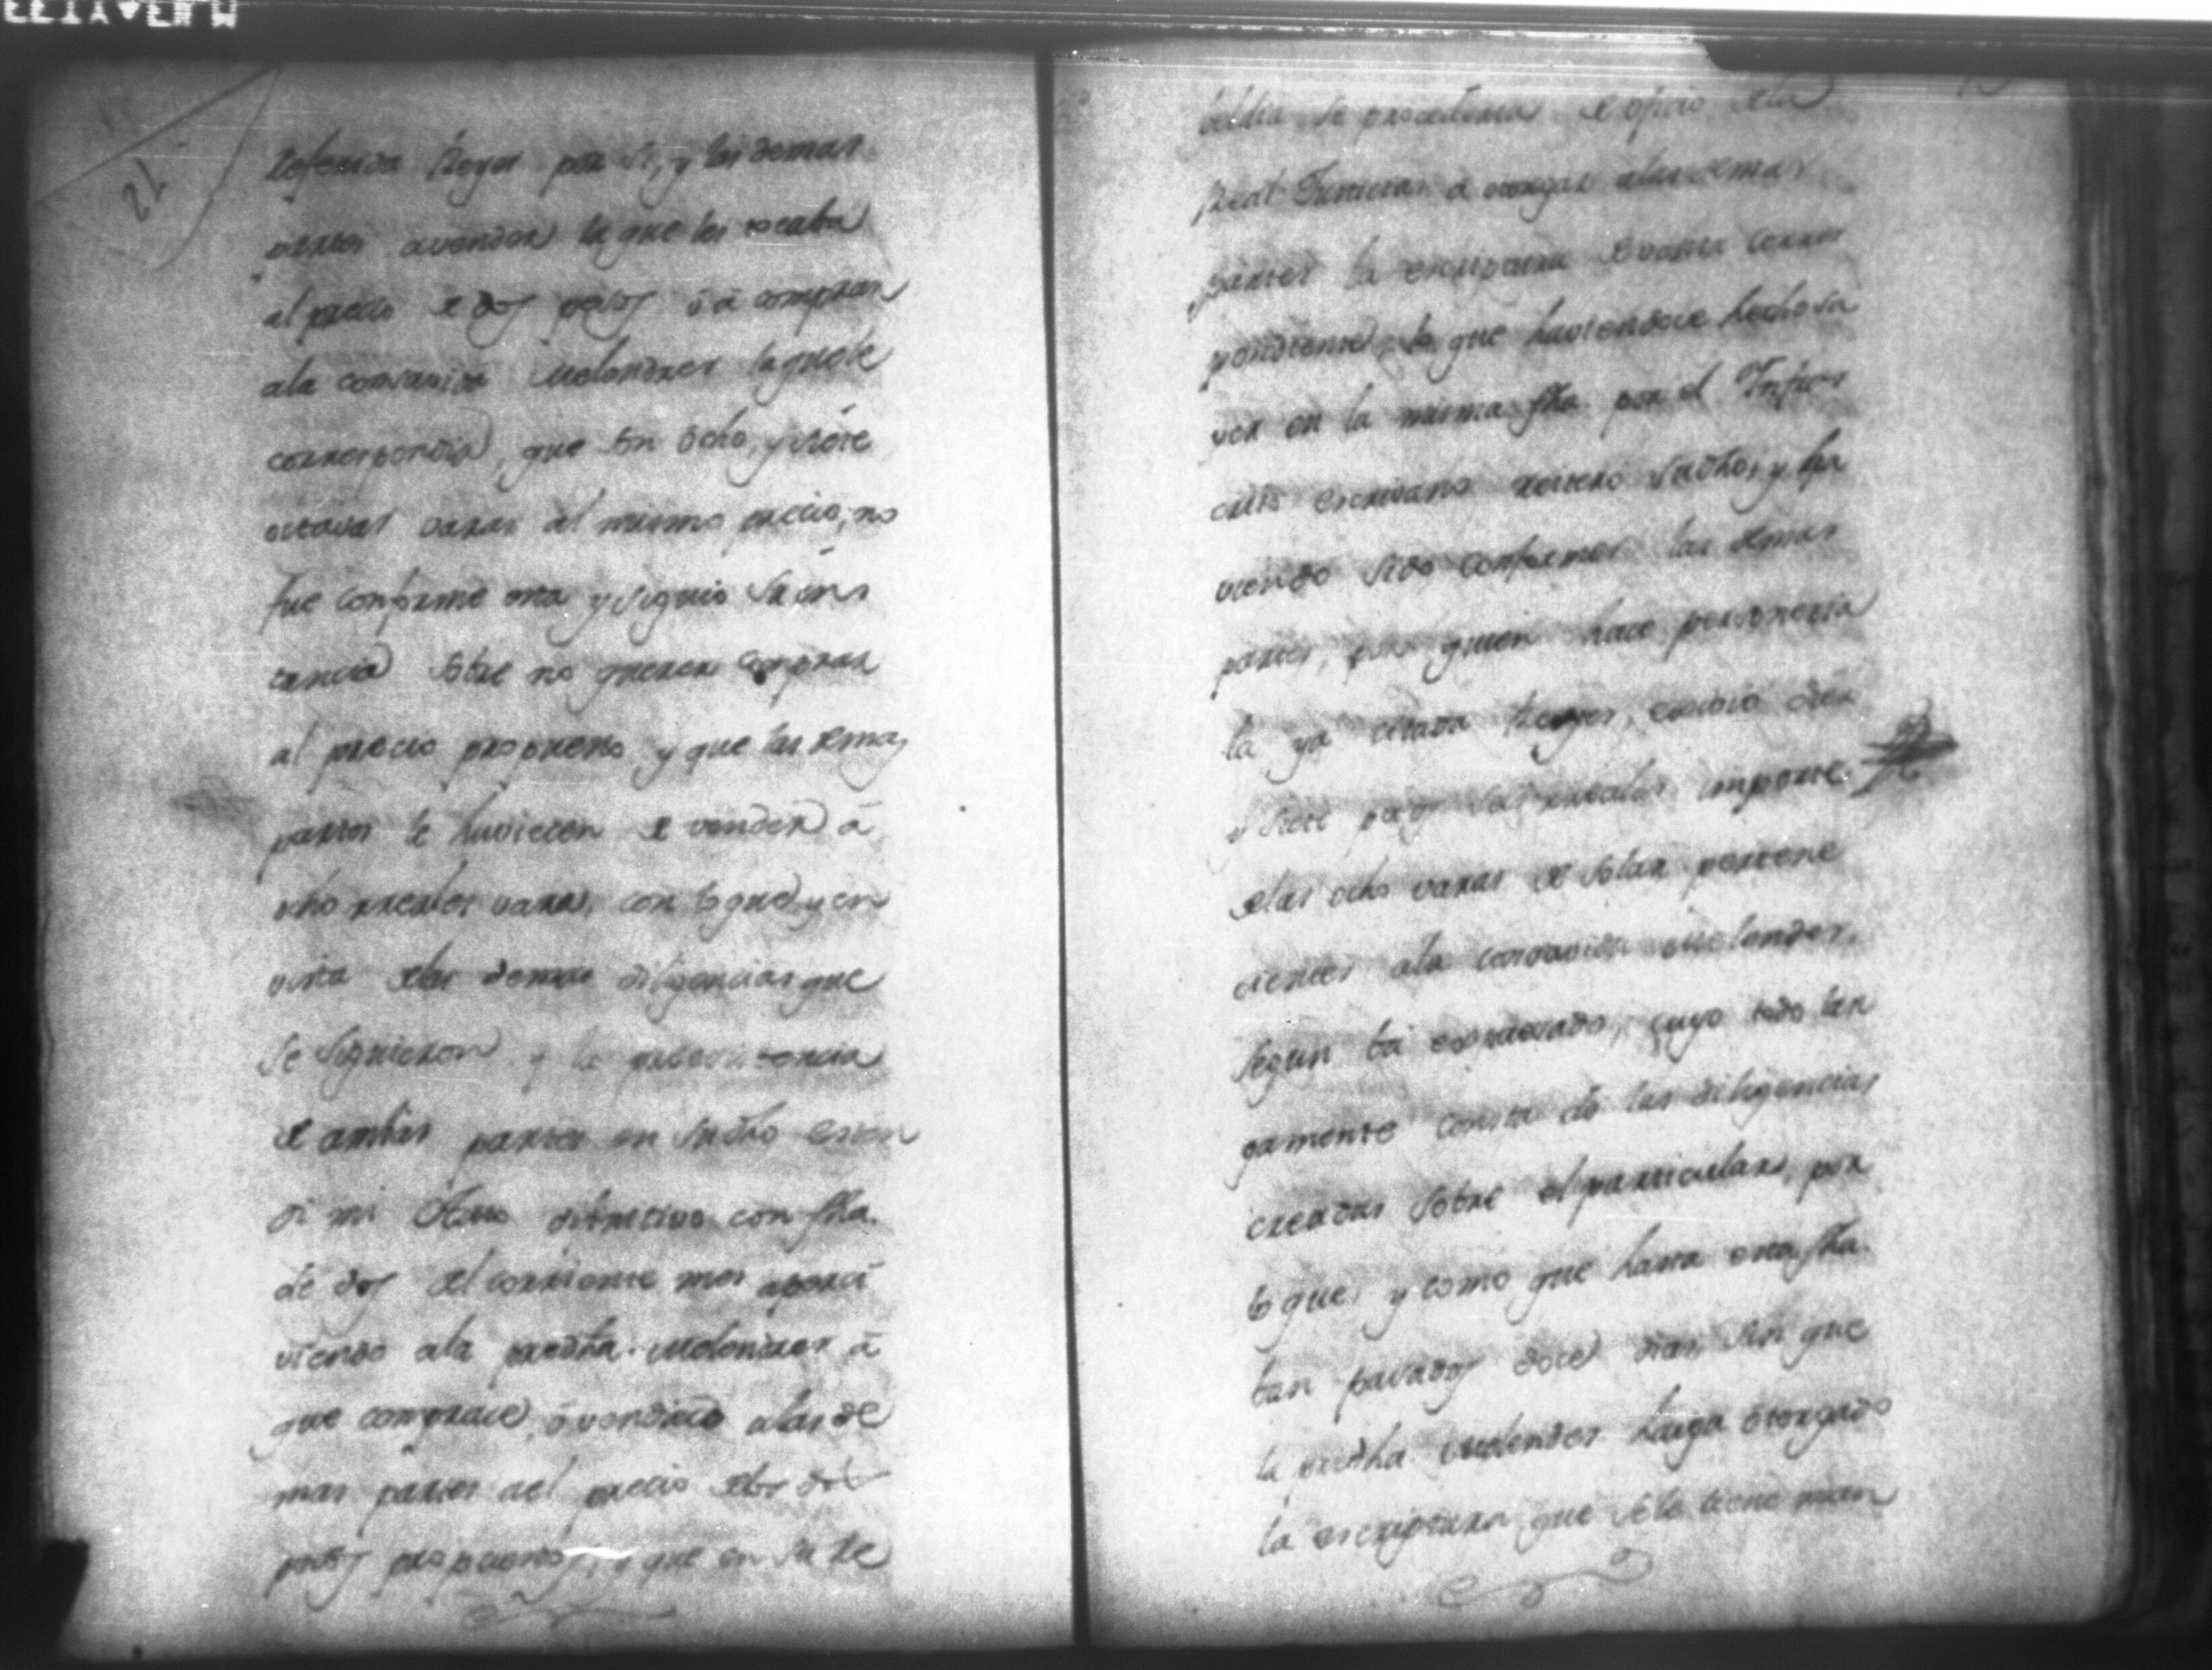 21
Referida Reyes por si, y las demas
partes a vender lo que les tocaba
al precio de dos pesos ó á comprar
ala contenida Melendres lo que le
correspondia, que son ocho, y siete
octavas varas al mismo precio, no
fue conforme esta y siguio su ins
tancia sobre no querer comprar
al precio propuesto y que las demas
partes le huviesen de vender á
ocho rreales vara, con lo que, y en
vista delas demas diligencias que
se siguieron y la
de ambas partes en su dho, exten
di mi Auto difinitivo con fha
de dos del corriente mes aperci
viendo ala predha Melendres á
que comprace, ó vendiece alas de
mas partes al precio delos dos
pesos propuestos, y que en su re
beldia se procederia de oficio dela
Real Justicia á otorgar alas demas
partes la escriptura de venta corres
pondiente, lo que haviendose hecho sa
ver en la misma fha por el Infras
cripto escrivano reitero su dho, y ha
viendo sido conformes las demas
partes, por quien hace personeria
la ya citada Reyes, exivio dies
y siete pesos seis rreales importe
delas ocho varas de solar pertene
cientes ala contenida Melendes,
segun ba expresado, cuyo todo lar
gamente consta de las diligencias
creadas sobre el particular, por
lo que, y como que hasta esta fha
ban pasados doce dias, sin que
la predha Melendes haiga otorgado
la escriptura que sele tiene man